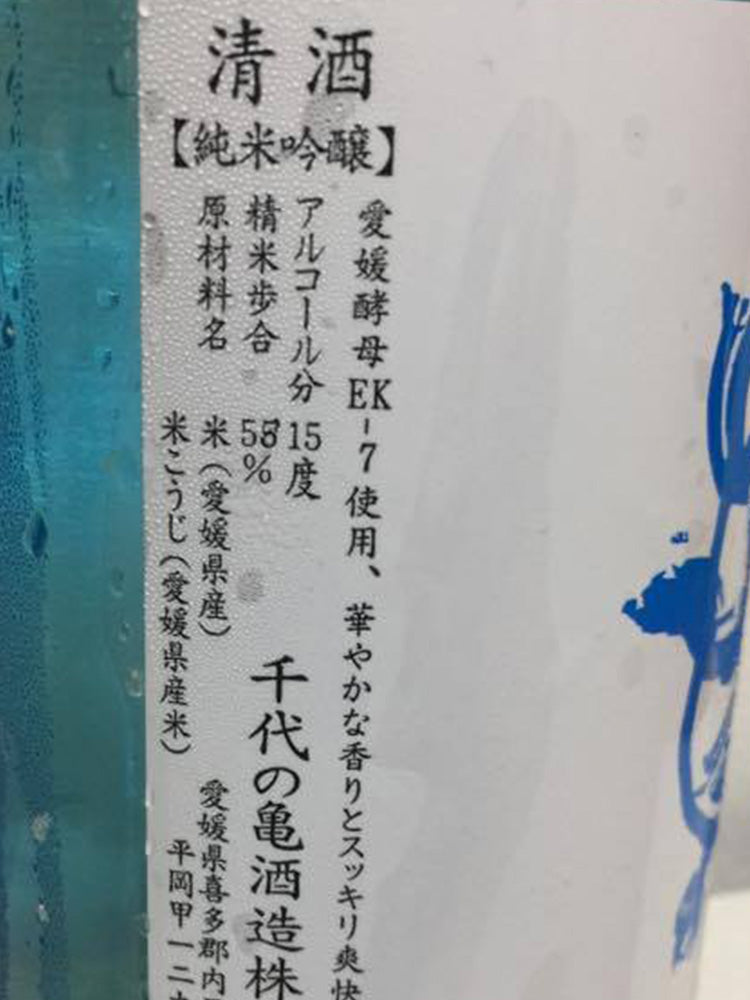 清酒
【純米吟醸】
愛媛酵母EK-7使用、華やかな香りとスッキリ爽快
アルコール分 15度
精米歩合 58%
原材料名 米(愛媛県産)
米こうじ(愛媛県産米)
千代の亀酒造株
愛媛県喜多郡内
平岡甲一二